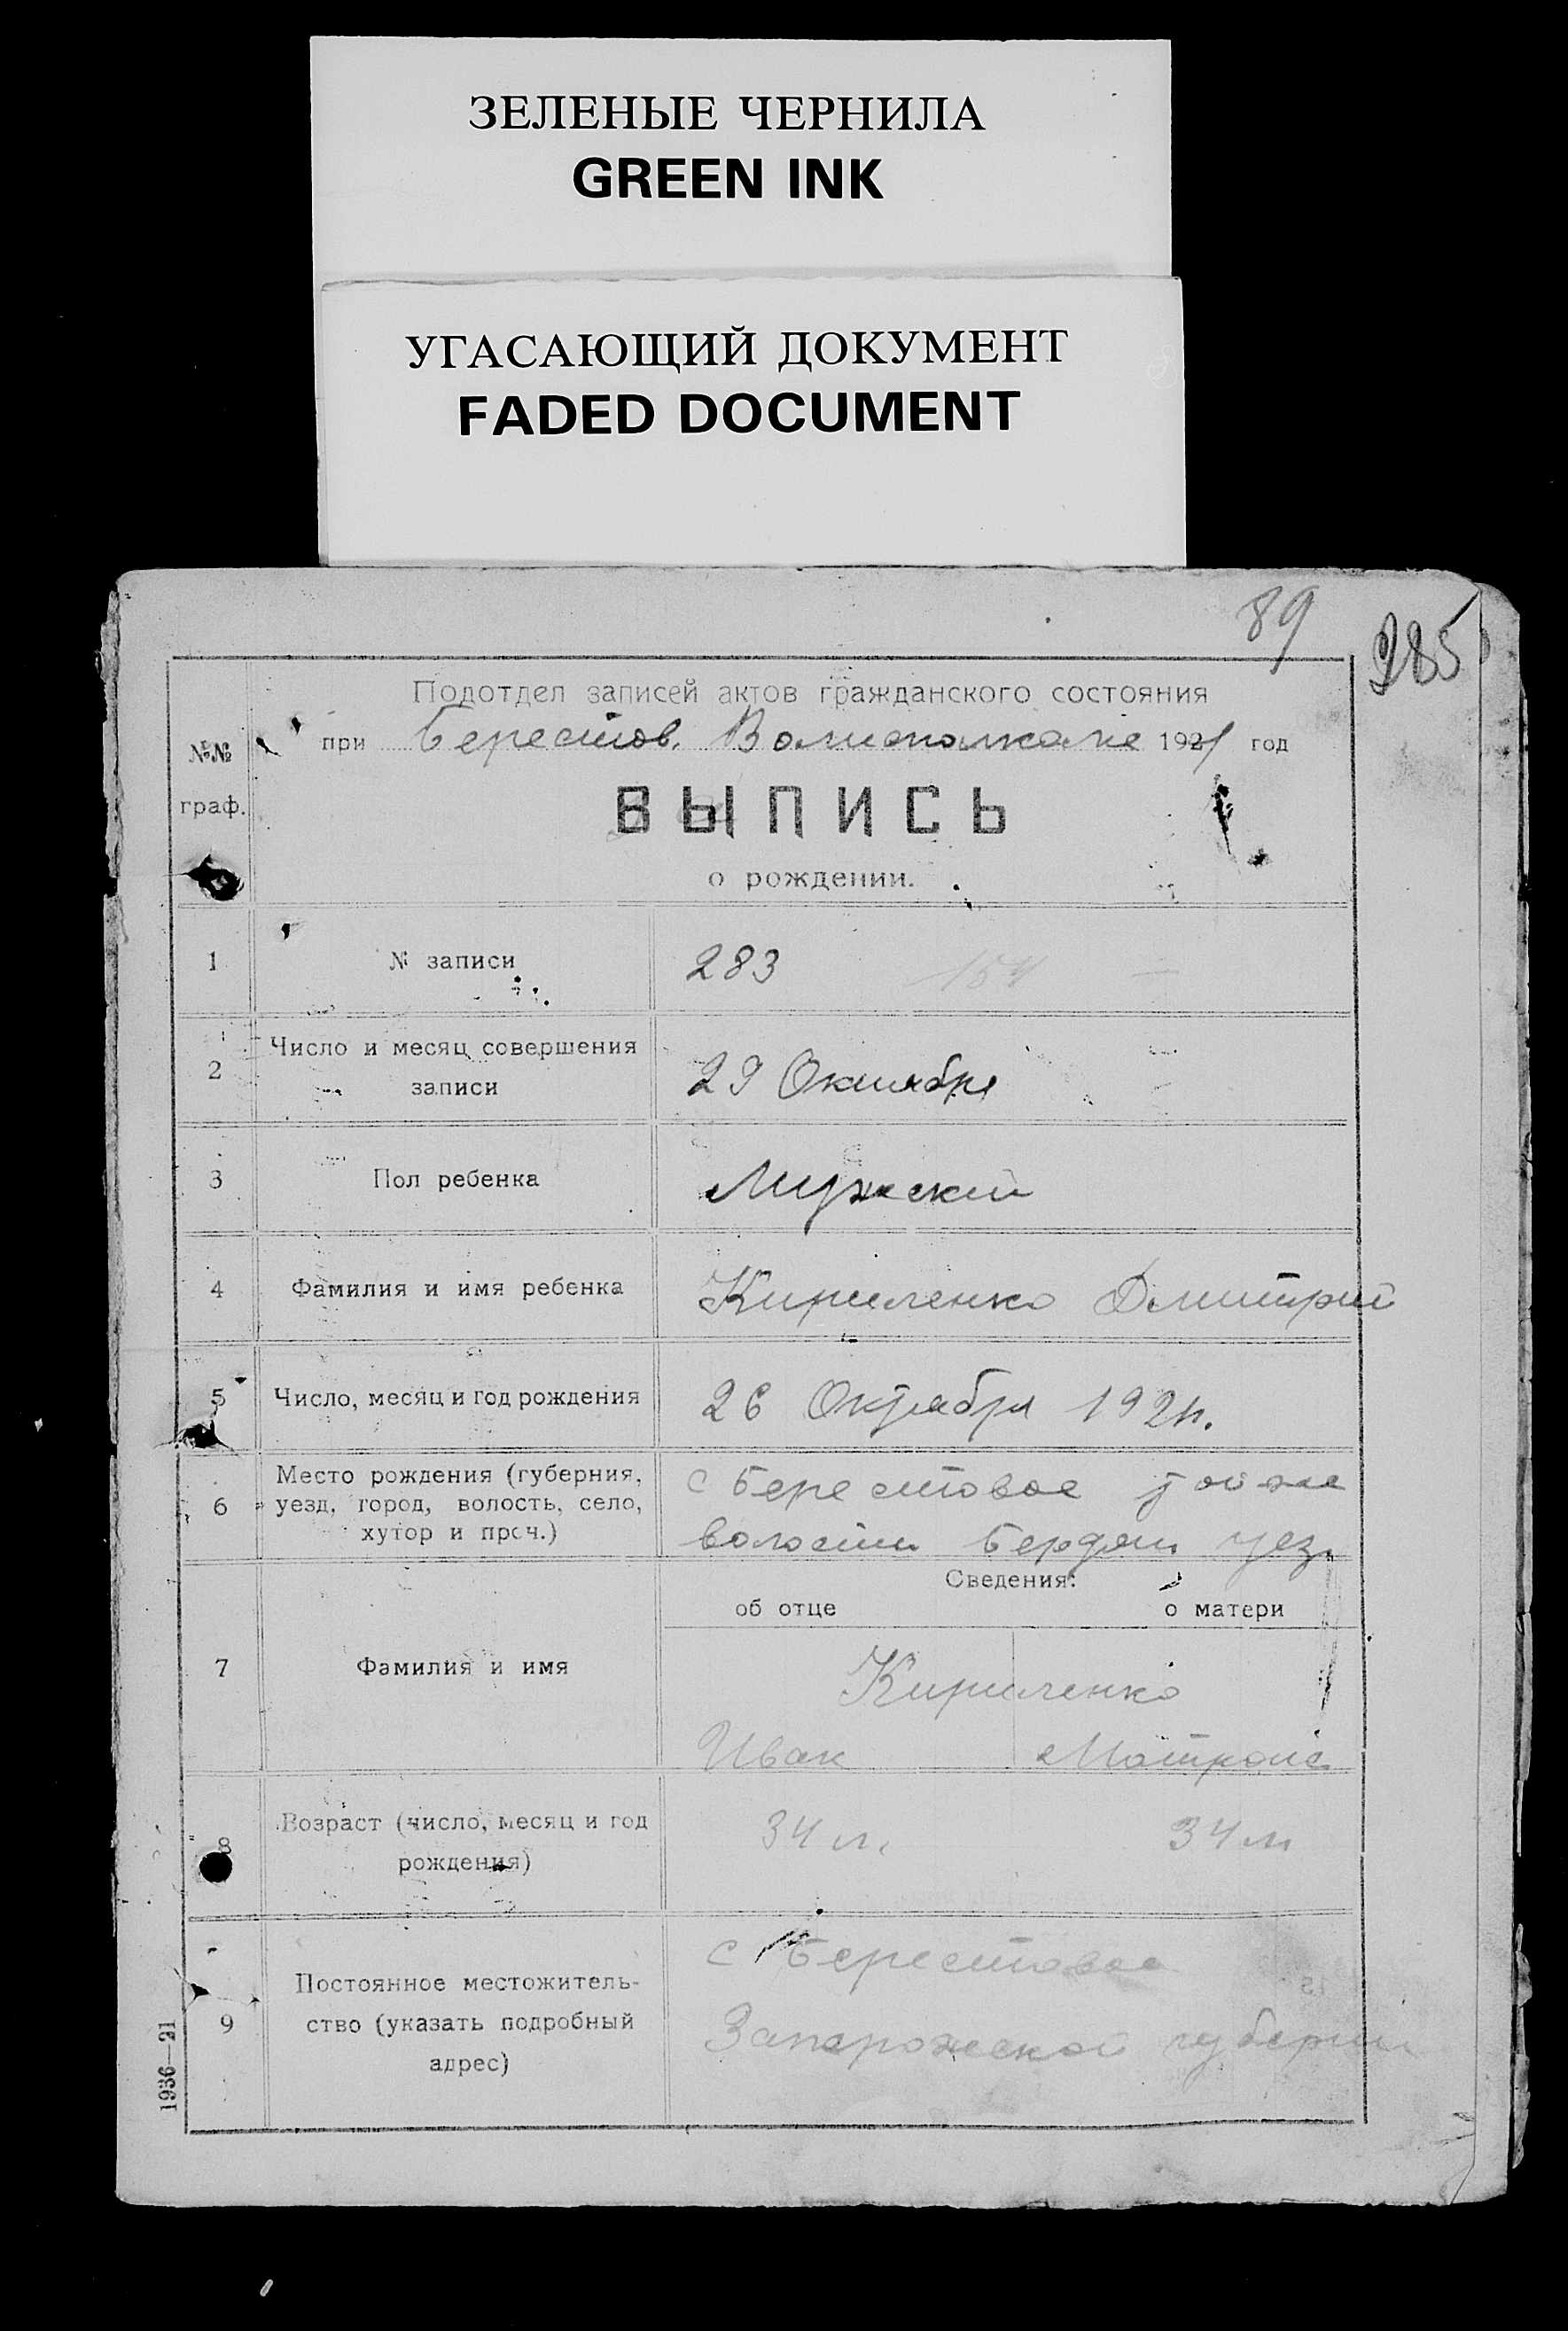 ЗЕЛЕНЫЕ ЧЕРНИЛА
GREEN INK
УГАСАЮЩИЙ ДОКУМЕНТ
FADED DOCUMENT
89
285
Подотдел записей актов гражданского состояния
при Берестов. Волисполкоме 1921 год
№№
граф.
ВЫПИСЬ
о рождении.
1 № записи 283
2 Число и месяц совершения
записи 29 Октября
3 Пол ребенка Мужский
4 Фамилия и имя ребенка Кириленко Дмитрий
5 Число, месяц и год рождения 26 Октября 1921г.
6 Место рождения (губерния, с Берестовое той же
уезд, город, волость, село, волости Бердян. уез.
хутор и проч.)
Сведения:
об отце о матери
7 Фамилия и имя Кириленко
Иван Матрона
8 Возраст (число, месяц и год 34 л. 34 л.
рождения)
9 Постоянное местожитель- с Берестовое
ство (указать подробный Запорожской губернии
адрес)
1936—21